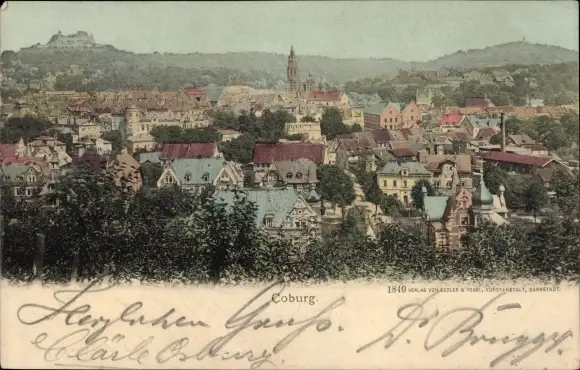 Coburg.
1840 VERLAG VON ZEDLER & VOGEL, KUNSTANSTALT, DARMSTADT.
Herzlichen Gruss.
Clärle Osburg
Dr Bruggy